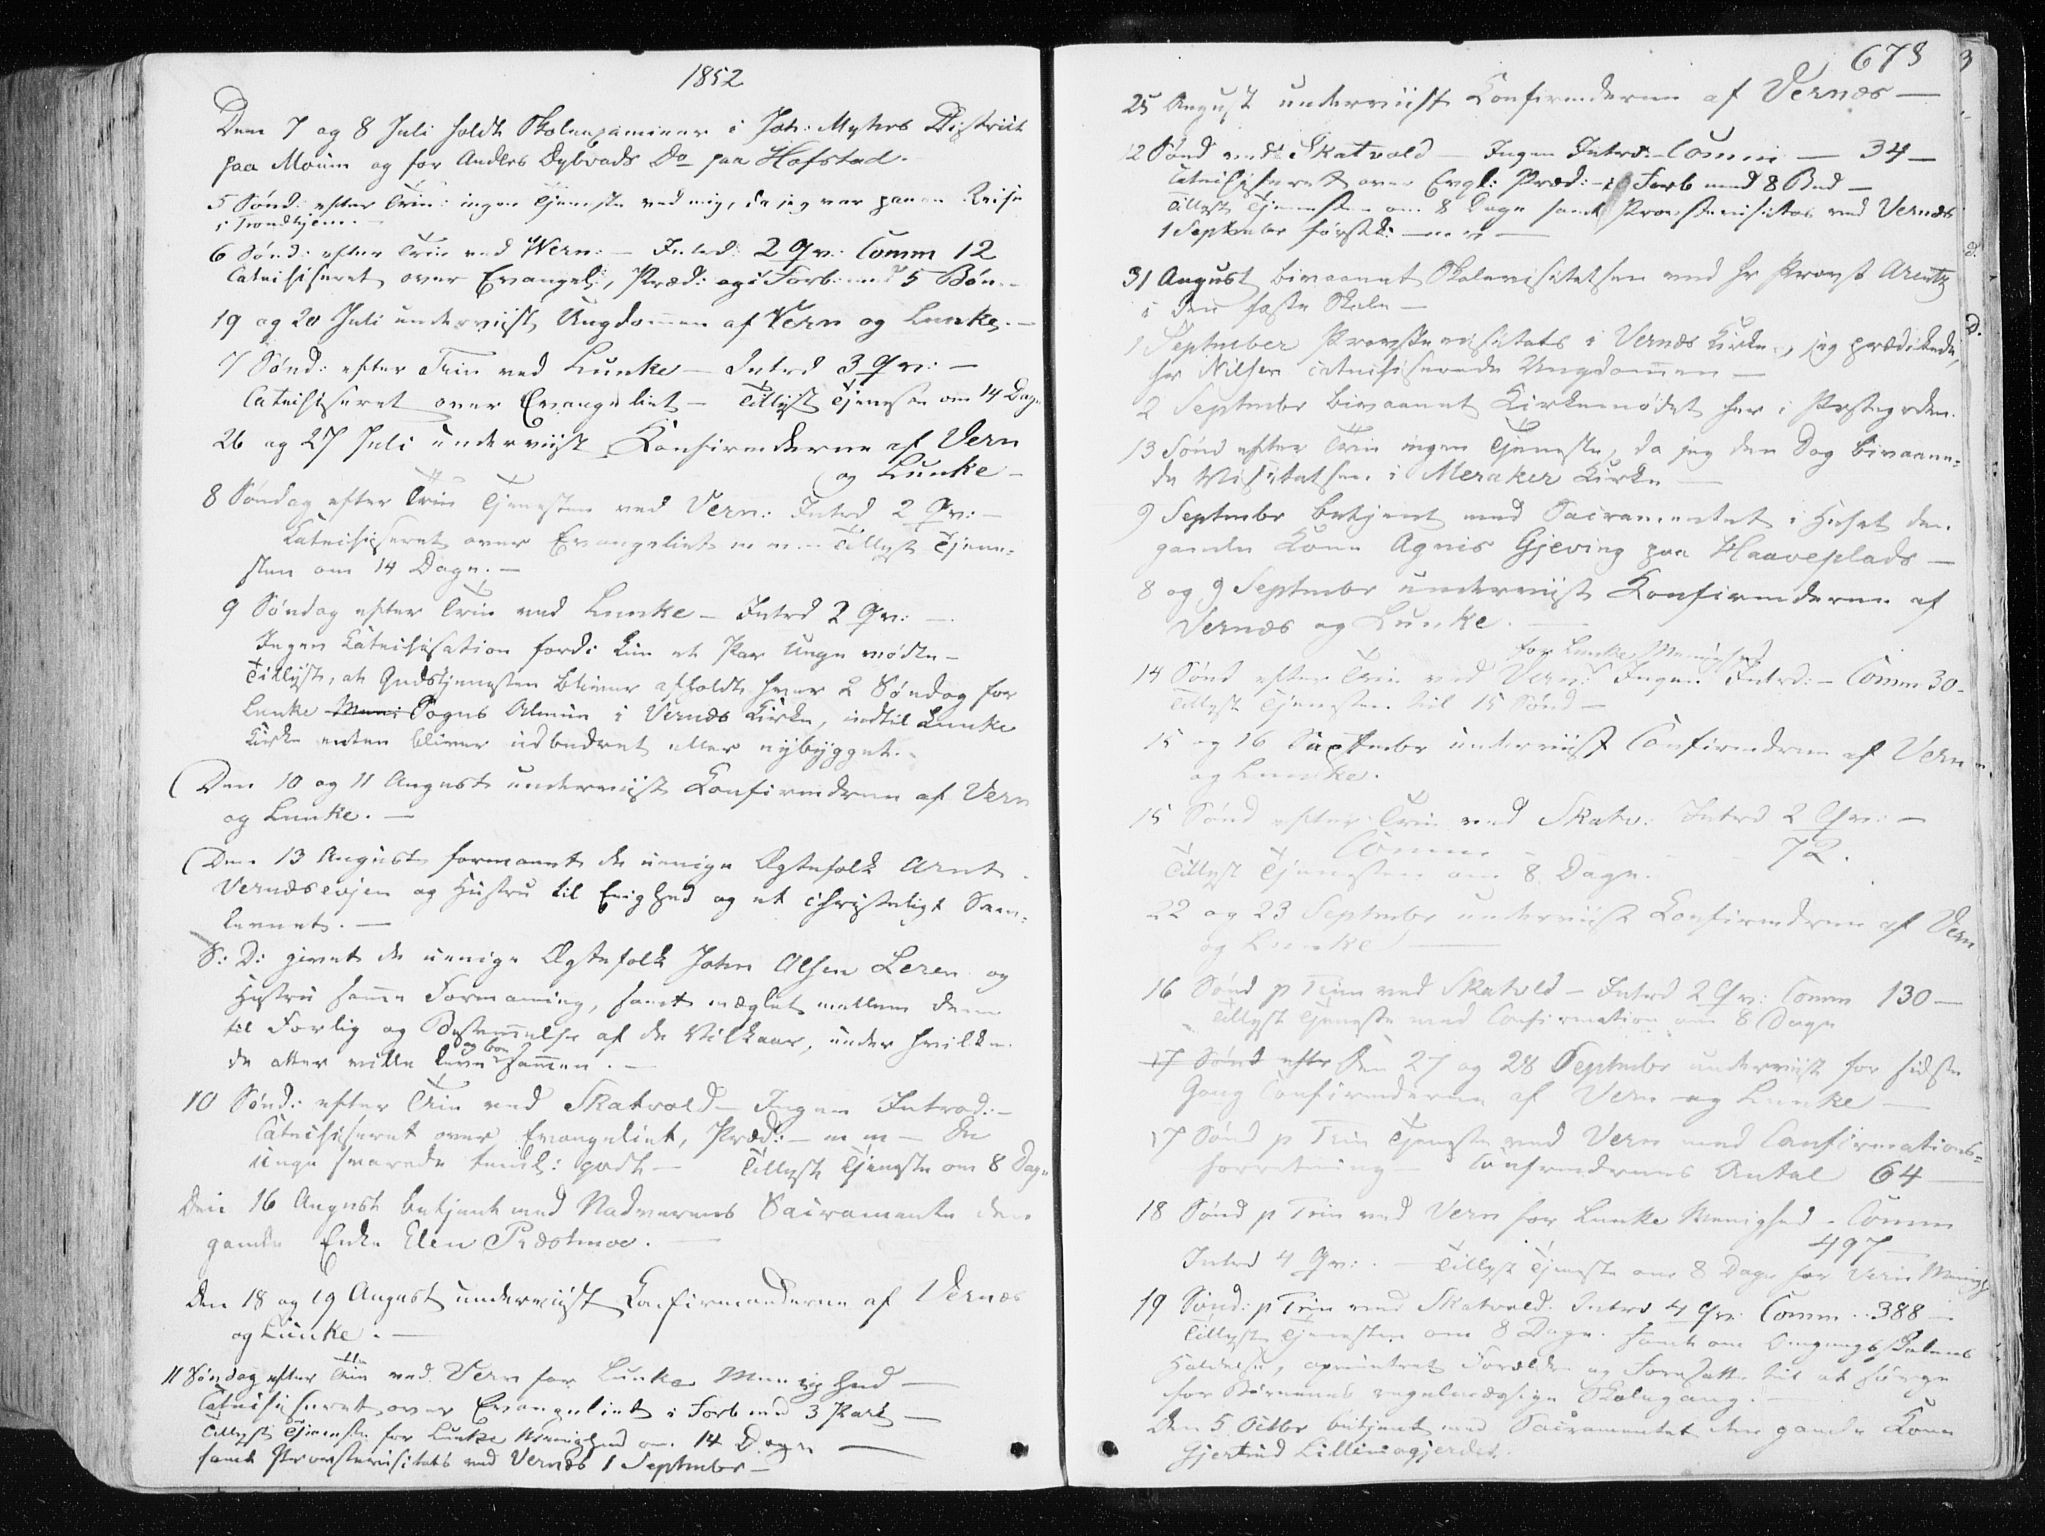 1852
Den 7 og 8 Juli holdt Skoleexaminer i Joh: Myhrs District
paa Moum og for Anders Dybvads Do paa Hofstad.
5 Sønd: efter Trin: ingen Tjeneste ved mig, da jeg var paa en Reise
i Trondhjem.
6 Sønd: efter Trin ved Wern: – Introd: 2 Qv: Comm 12
Catechiseret over Evangel:, Præd: og i Forb: med 5 Bøn –
19 og 20 Juli underviist Ungdommen af Vern og Lunke. –
7 Sønd: efter Trin ved Lunke – Introd 3 Qv: –
Catechiseret over Evangeliet – Tillyst Tjeneste om 14 Dage
26 og 27 Juli underviist Konfirmderne af Vern
og Lunke –
8 Søndag efter Trin Tjenesten ved Vern: Introd 2 Qv: –
Catechiseret over Evangeliet m m – Tillyst Tjene-
sten om 14 Dage. –
9 Søndag efter Trin ved Lunke – Introd 2 Qv: –
Ingen Catechisation fordi kun et Par Unge mødte –
Tillyst, at Gudstjenesten bliver afholdt hver 2 Søndag for
Lunke Sogns Almue i Vernæs Kirke, indtil Lunke
Kirke enten bliver udbedret eller nybygget. –
Den 10 og 11 August underviist Konfirmdrne af Vern
og Lunke. –
Den 13 August formanet de uenige Ægtefolk Arnt
Vernæseujen og Hustru til Enighed og et christeligt Sam-
levnet. –
S: D: givet de uenige Ægtefolk John Olsen Leren og
Hustru samme Formaning, samt mæglet mellem dem
til Forlig og Bestemmelse af de Vilkaar, under hvilke
og boe
de atter ville leve sammen. –
10 Sønd: efter Trin ved Skatvold – Ingen Introd: –
Catechiseret over Evangeliet, Præd: – m m – De
unge svarede temel: godt – Tillyst Tjeneste om 8 Dage
Den 16 August betjent med Nadverens Sacramente den
gamle Enke Elen Præstmoe. –
Den 18 og 19 August underviist Konfirmanderne af Vernæs
og Lunke. –
11 Søndag efter Trin ved Vern for Lunke Menighed –
Catechiseret over Evangeliet i Forb med 3 Part –
Tillyst Tjeneste for Lunke Menighed om 14 Dage –
samt Provstevisitats ved Vernæs 1 September –
673
25 August underviist Konfirmderne af Vernæs –
12 Sønd ved Skatvold – Ingen Introd. – Comm – 34 –
Catechiseret over Evgl: Præd: – i Forb med 8 Bud –
Tillyst Tjenesten om 8 Dage samt Provstevisitats ved Vernæs
1 September førstk: – m v –
31 August bivaanet Skolevisitatsen ved Hr Provst Arentz
i den faste Skole –
1 September Provstevisitats i Vernæs Kirke –, jeg prædikede,
Hr Nilsen catechiserede Ungdommen –
2 September bivaanet Kirkemødet her i Præstegrden.
13 Sønd efter Trin ingen Tjeneste, da jeg den Dag bivaane-
de Visitatsen i Meraker Kirke –
9 September betjent med Sacramentet i Huset den
gamle Kone Agnis Gjeving paa Haaveplads –
8 og 9 September underviist Konfirmderne af
Vernæs og Lunke. –
for Lunke Menighed
14 Sønd efter Trin ved Vern: Ingen Introd: – Comm 30 –
Tillyst Tjenesten til 15 Sønd –
15 og 16 September underviist Confirmdrne af Vern
og Lunke.
15 Sønd efter Trin ved Skatv: Introd 2 Qv: –
Comm – 72.
Tillyst Tjenesten om 8 Dage.
22 og 23 September underviist Konfirmdrne af Vern
og Lunke –
16 Sønd p Trin ved Skatvold – Introd 2 Qv: Comm 130 –
Tillyst Tjeneste med Confirmation om 8 Dage
17 Sønd efter Den 27 og 28 September underviist for sidste
Gang Confirmderne af Vern og Lunke –
17 Sønd p Trin Tjeneste ved Vern med Confirmations-
forretning – Confirmdrnes Antal 64 –
18 Sønd p Trin ved Vern for Lunke Menighed – Comm
497 –
Introd 4 Qv: – Tillyst Tjeneste om 8 Dage for Vern Menigh
19 Sønd: p Trin ved Skatvold. Introd 4 Qv: Comm – 388 –
Tillyst Tjenesten om 8 Dage. samt om Omgangsskolens
Holdelse, opmuntret Forældre og Foresatte til at sørge
for Børnenes regelmæssige Skolegang. –
Den 5 Octbr betjent med Sacramentet den gamle Kone
Gjertrud Lillemogjerdet.